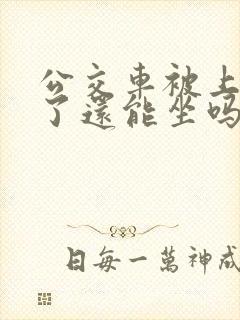 公交車被上
了還能坐吗
日每一萬神成